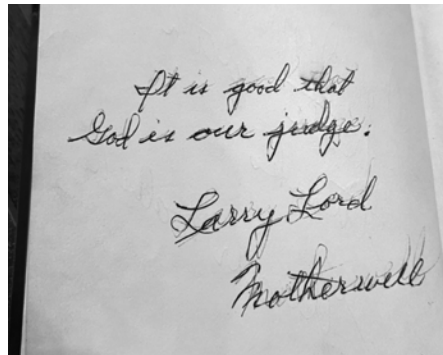 It is good that
God is our judge.
Larry Lord
Motherwell